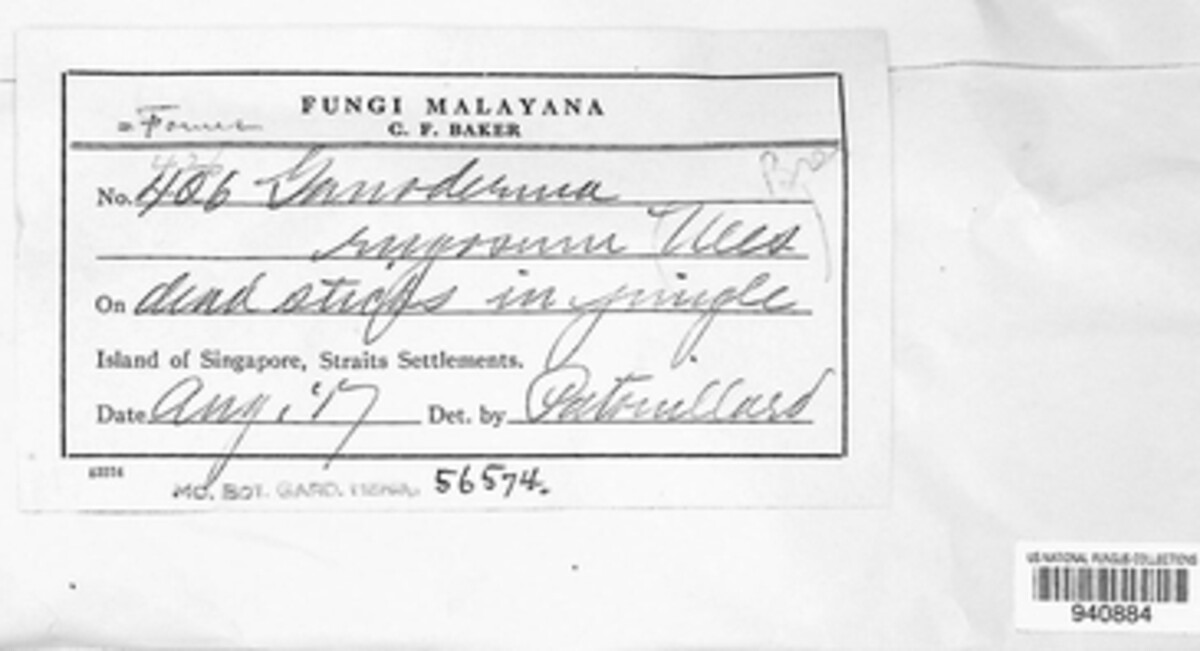 FUNGI MALAYANA
= Fomes
C. F. BAKER
No. 406 Ganoderma
rugosum (Nees
On dead sticks in jungle
Island of Singapore, Straits Settlements.
Date Aug. '17 Det. by Patouillard
MO. BOT. GARD. HERB. 56574.
US NATIONAL FUNGUS COLLECTIONS
940884